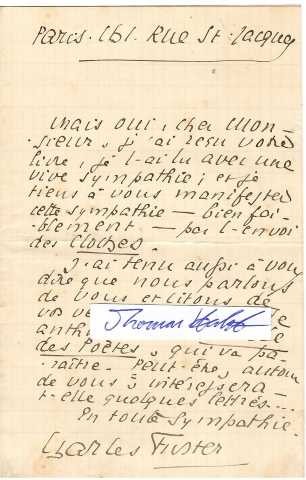 Paris. 161. Rue St. Jacques
Mais oui, cher Mon-
sieur, j'ai reçu votre
livre, je l'ai lu avec une
vive sympathie; et je
tiens à vous manifester
cette sympathie — bien fai-
blement — par l'envoi
des Cloches.
J'ai tenu aussi à vous
dire que nous parlons
de vous et citons de
vos
anth
des Poètes, qui va pa-
raître. Peut-être, autour
de vous, intéressera-
t-elle quelques lettrés...
En toute sympathie
Charles Fuster